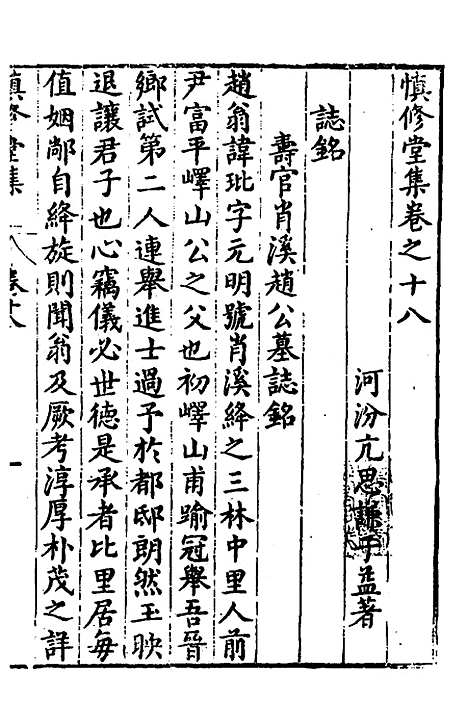 慎修堂集卷之十八
河汾亢思謙子益著
誌銘
壽官肖溪趙公墓誌銘
趙翁諱玭字元明號肖溪絳之三林中里人前
尹富平嶧山公之父也初嶧山甫踰冠舉吾晉
鄉試第二人連舉進士過予於都邸朗然玉映
退讓君子也心竊儀必世德是承者比里居每
值姻鄰自絳旋則聞翁及厥考淳厚朴茂之詳
慎修堂集
卷十八
一